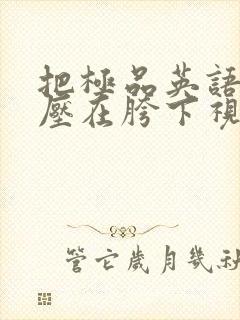 把極品英語
壓在胯下視
管它歲月幾